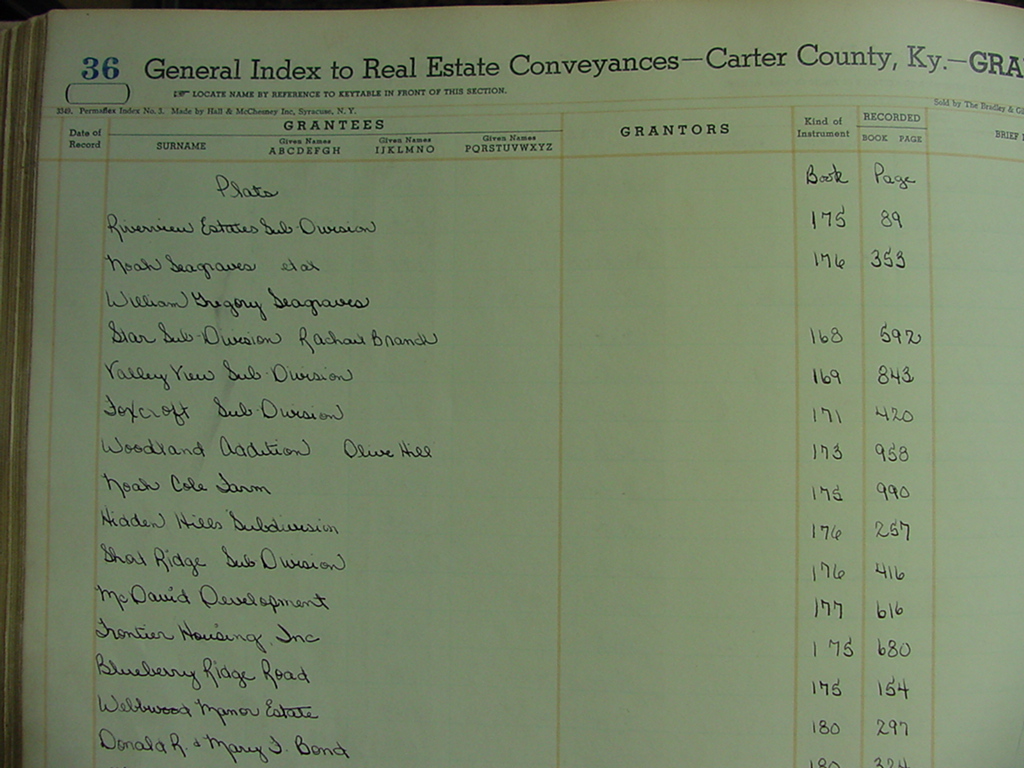 36 General Index to Real Estate Conveyances—Carter County, Ky.—GRA
LOCATE NAME BY REFERENCE TO KEYTABLE IN FRONT OF THIS SECTION.
3349, Permaflex Index No. 3. Made by Hall & McChesney Inc, Syracuse, N. Y. Sold by The Bradley & Gi
Date of Record GRANTEES GRANTORS Kind of Instrument RECORDED BRIEF
SURNAME Given Names ABCDEFGH Given Names IJKLMNO Given Names PQRSTUVWXYZ BOOK PAGE
Plats Book Page
Riverview Estates Sub-Division 175 89
Noah Seagraves et al 176 353
William Gregory Seagraves
Star Sub-Division Branch 168 592
Valley View Sub-Division 169 843
Foxcroft Sub-Division 171 420
Woodland Addition Olive Hill 173 958
Noah Cole Farm 175 990
Hidden Hills Subdivision 176 257
Ridge Sub Division 176 416
McDavid Development 177 616
Frontier Housing, Inc 175 680
Blueberry Ridge Road 175 154
Webbwood Manor Estate 180 297
Donald R. & Mary F. Bond 180 324